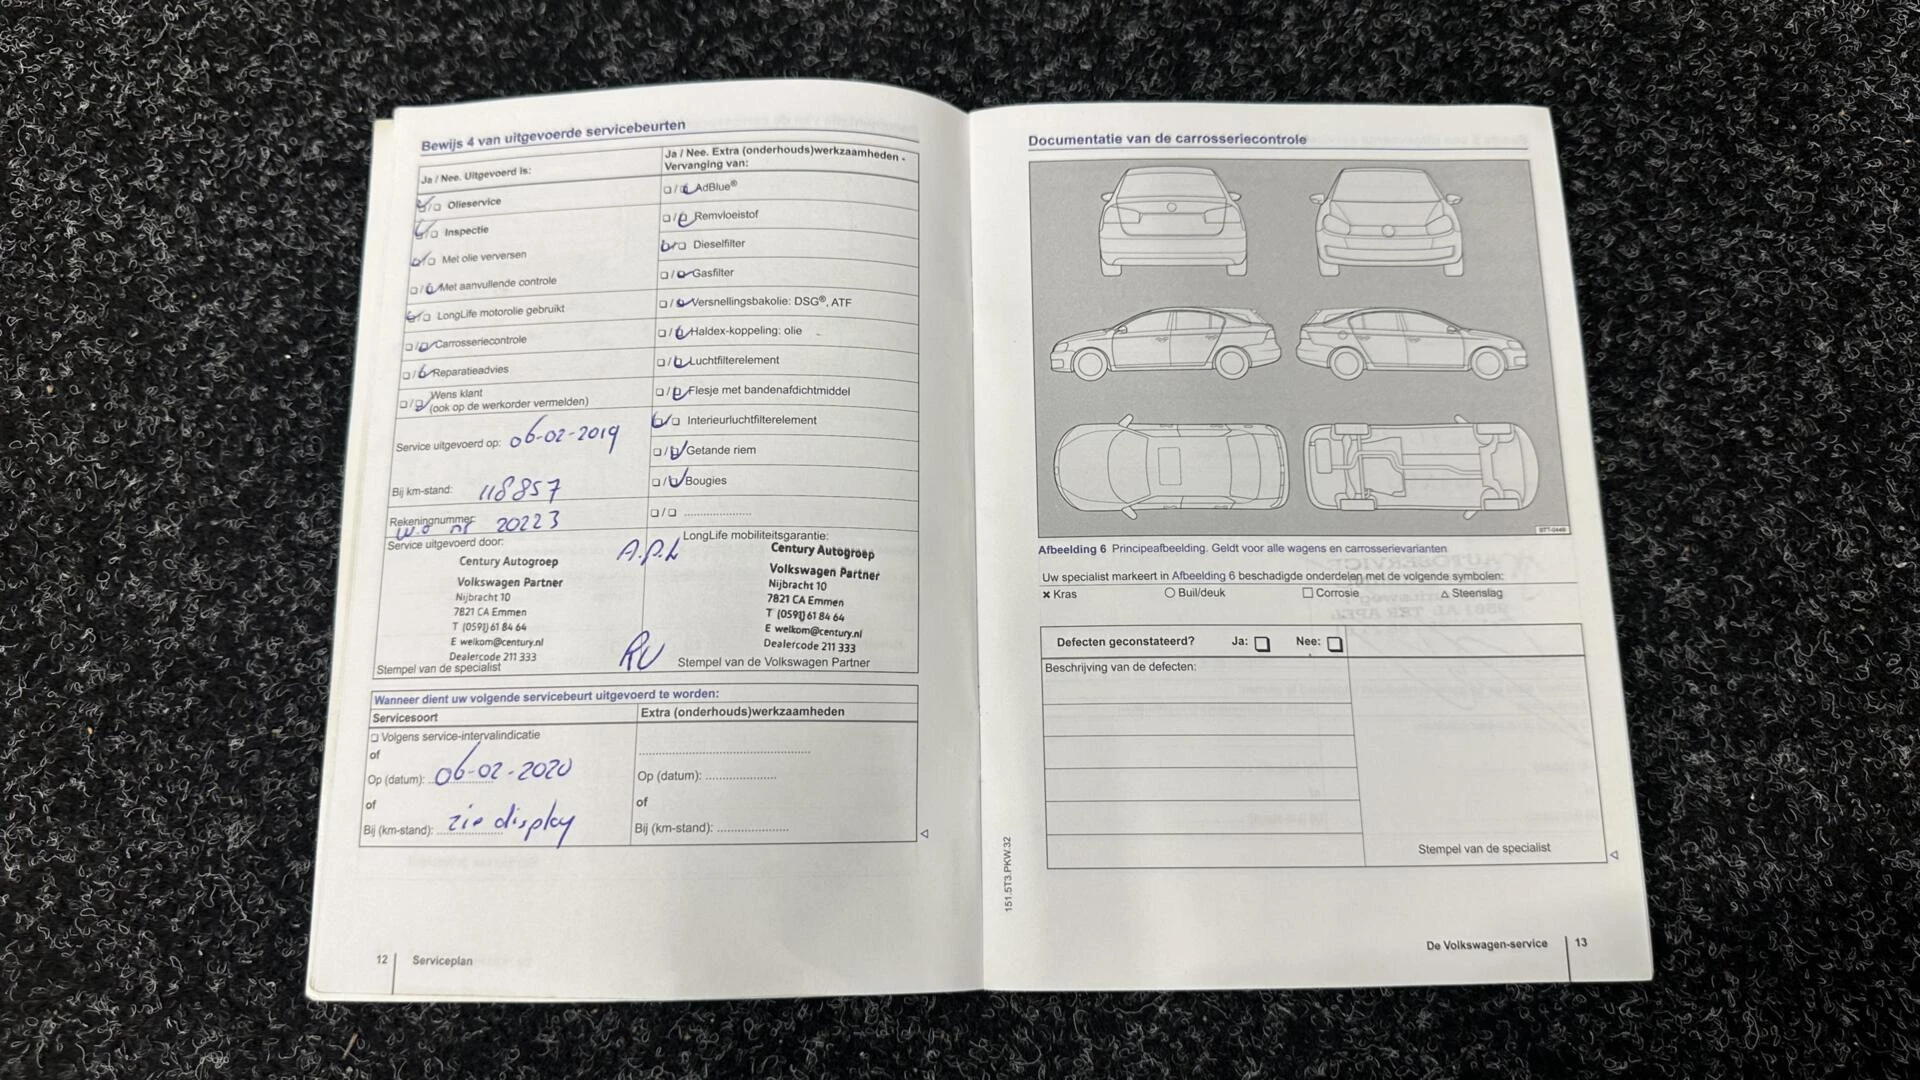 Bewijs 4 van uitgevoerde servicebeurten
Ja / Nee. Uitgevoerd is:
Olieservice
Inspectie
Met olie verversen
Met aanvullende controle
LongLife motorolie gebruikt
Carrosseriecontrole
Reparatieadvies
Wens klant
(ook op de werkorder vermelden)
Service uitgevoerd op: 06-02-2019
Bij km-stand: 118857
Rekeningnummer:
w.o nr 20223
Service uitgevoerd door:
Century Autogroep
Volkswagen Partner
Nijbracht 10
7821 CA Emmen
T (0591) 61 84 64
E welkom@century.nl
Dealercode 211 333
Stempel van de specialist
Ja / Nee. Extra (onderhouds)werkzaamheden -
Vervanging van:
AdBlue®
Remvloeistof
Dieselfilter
Gasfilter
Versnellingsbakolie: DSG®, ATF
Haldex-koppeling: olie
Luchtfilterelement
Flesje met bandenafdichtmiddel
Interieurluchtfilterelement
Getande riem
Bougies
LongLife mobiliteitsgarantie:
A.P.K
Century Autogroep
Volkswagen Partner
Nijbracht 10
7821 CA Emmen
T (0591) 61 84 64
E welkom@century.nl
Dealercode 211 333
Stempel van de Volkswagen Partner
Wanneer dient uw volgende servicebeurt uitgevoerd te worden:
Servicesoort
Volgens service-intervalindicatie
of
Op (datum): 06-02-2020
of
Bij (km-stand): zie display
Extra (onderhouds)werkzaamheden
Op (datum):
of
Bij (km-stand):
12 Serviceplan
Documentatie van de carrosseriecontrole
Afbeelding 6 Principeafbeelding. Geldt voor alle wagens en carrosserievarianten
Uw specialist markeert in Afbeelding 6 beschadigde onderdelen met de volgende symbolen:
× Kras ○ Buil/deuk □ Corrosie △ Steenslag
Defecten geconstateerd? Ja: Nee:
Beschrijving van de defecten:
Stempel van de specialist
151.5T3.PKW.32
De Volkswagen-service 13